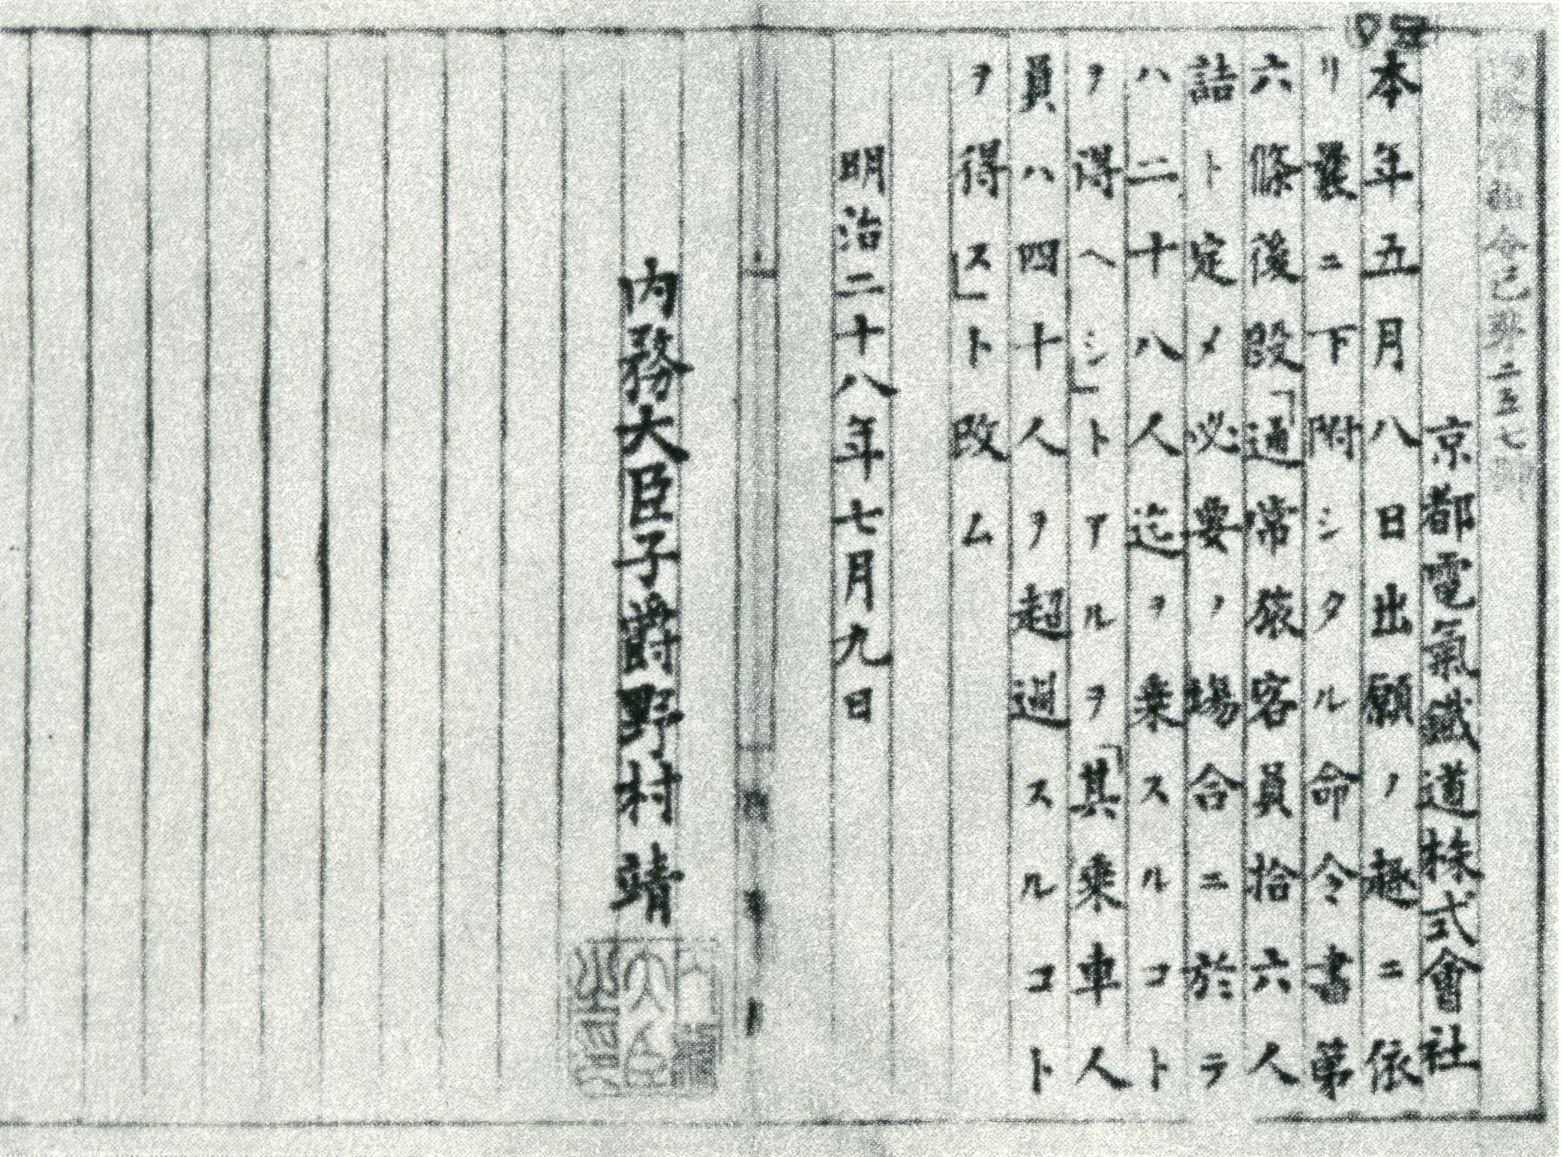 令乙第二五七
京都電氣鐵道株式會社
本年五月八日出願ノ趣ニ依
リ曩ニ下附シタル命令書第
六條後段「通常旅客員拾六人
詰ト定メ必要ノ場合ニ於テ
ハ二十八人迄ヲ乗スルコト
ヲ得ヘシ」トアルヲ「其乗車人
員ハ四十人ヲ超過スルコト
ヲ得ス」ト改ム
明治二十八年七月九日
内務大臣子爵野村靖
内務大臣之印